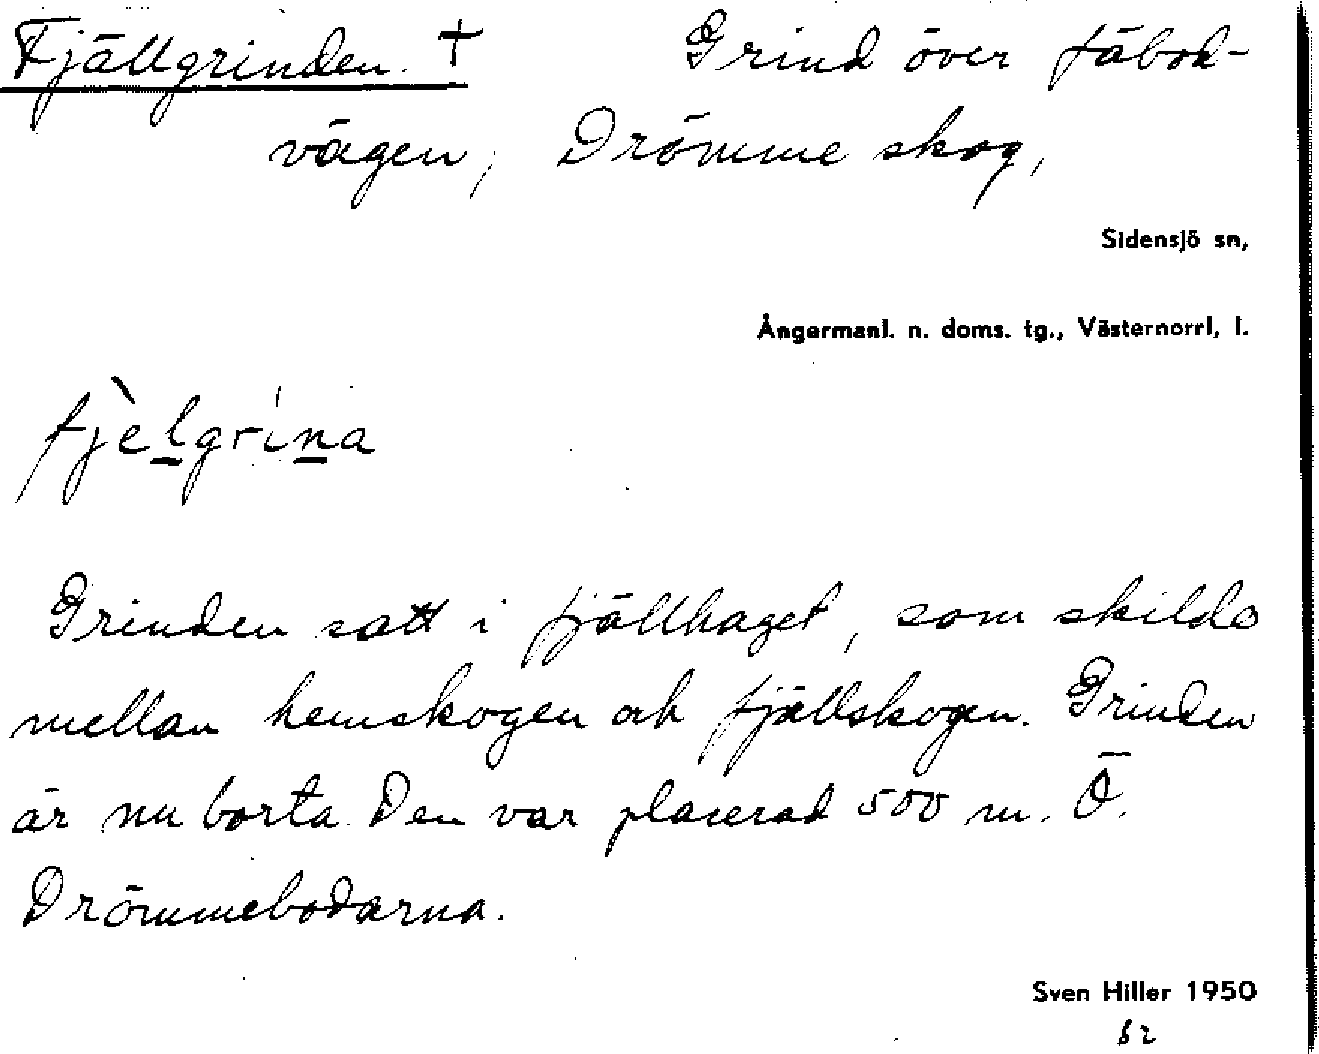 Fjällgrinden. † Grind över fäbod-
vägen, Drömme skog,
Sidensjö sn,
Ångermanl. n. doms. tg., Västernorrl. l.
fjèlgrína
Grinden satt i fjällhaget, som skilde
mellan hemskogen och fjällskogen. Grinden
är nu borta. Den var placerad 500 m. Ö.
Drömmebodarna.
Sven Hiller 1950
62